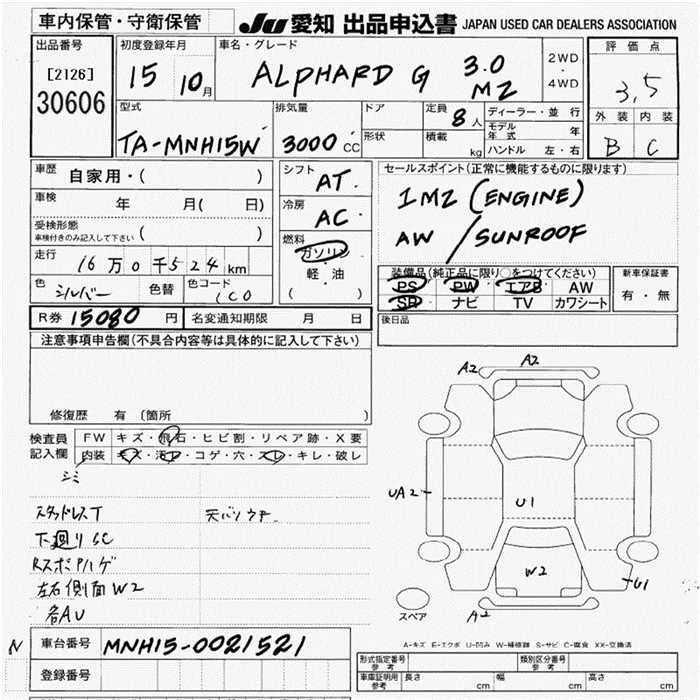 車内保管・守衛保管
JU 愛知 出品申込書 JAPAN USED CAR DEALERS ASSOCIATION
出品番号
[2126]
30606
初度登録年月
15 10月
車名・グレード
ALPHARD G 3.0 MZ
2WD
・
4WD
評価点
3,5
外装 内装
B C
型式
TA-MNH15W
排気量
3000 CC
ドア
形状
定員
8人
積載
kg
ディーラー・並行
モデル年式 年
ハンドル 左・右
車歴
自家用・( )
車検 年 月( 日)
受検形態
車検付きのみ記入して下さい ( )
走行 16万0千524km
色 シルバー 色替 色コード 1C0
シフト AT
冷房 AC
燃料
ガソリン
軽・油
( )
セールスポイント(正常に機能するものに限ります)
1MZ (ENGINE)
AW / SUNROOF
装備品(純正品に限り○をつけてください)
PS PW エアB AW
SR ナビ TV カワシート
新車保証書
有・無
R券 15080 円
名変通知期限 月 日
後日品
注意事項申告欄(不具合内容等は具体的に記入して下さい)
修復歴 有 〔箇所 〕
検査員記入欄
FW キズ・飛石・ヒビ割・リペア跡・X要
内装 キズ・汚レ・コゲ・穴・スレ・キレ・破レ
シミ
スタッドレスT
天バリウキ
下廻りSC
Rスポイハゲ
左右側面W2
各AU
A2
A2
UA2
U1
W2
U1
A2
スペア
A-キズ E-エクボ U-凹み W-補修跡 S-サビ C-腐食 XX-交換済
N
車台番号 MNH15-0021521
登録番号
形式指定番号 参考
類別区分番号 参考
車庫証明用 参考
長さ cm 幅 cm 高さ cm